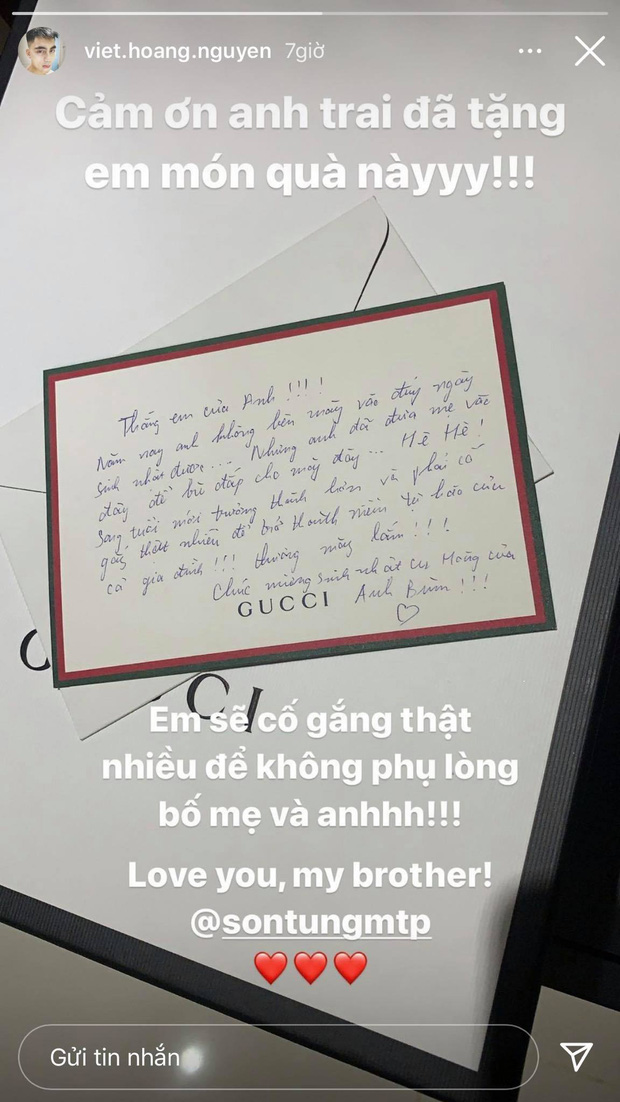 viet.hoang.nguyen 7giờ
Cảm ơn anh trai đã tặng
em món quà nàyyy!!!
Thằng em của Anh !!!!
Năm nay anh không bên mày vào đúng ngày
sinh nhật được... Nhưng anh đã đưa mẹ vào
đây để bù đắp cho mày đây... Hê Hê!
Sang tuổi mới trưởng thành hơn và phải cố
gắng thật nhiều để trở thành niềm tự hào của
cả gia đình!!! thương mày lắm!!!
Chúc mừng sinh nhật cu Hoàng của
Anh Bủm !!!
GUCCI
CI
Em sẽ cố gắng thật
nhiều để không phụ lòng
bố mẹ và anhhh!!!
Love you, my brother!
@sontungmtp
Gửi tin nhắn